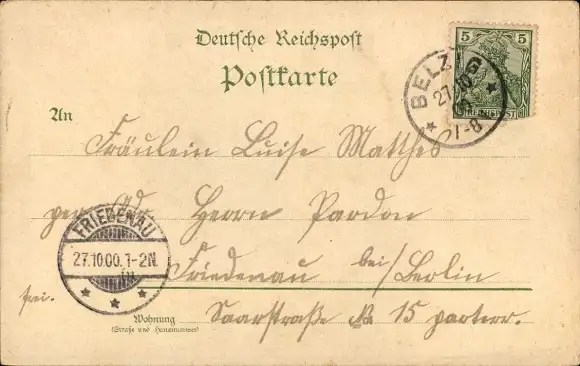 Deutsche Reichspost
Postkarte
5 5
REICHSPOST
BELZIG
27.10
00
7-8
An
Fräulein Luise Matthes
per Ad Herrn Pardon
FRIEDENAU
27.10.00.1-2N.
Friedenau bei/Berlin
frei.
Saarstraße № 15 parterr.
Wohnung
(Straße und Hausnummer)